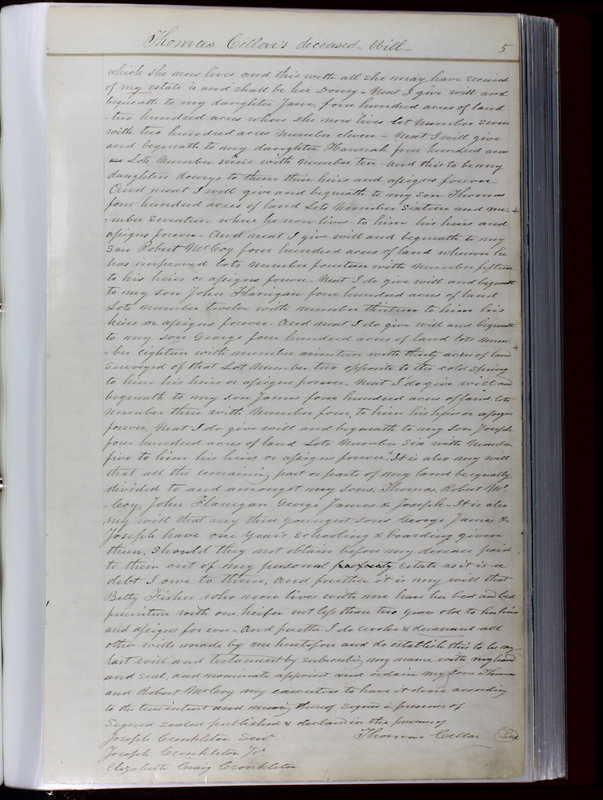 Thomas Cellar's deceased - Will -
5
which she now lives and this with all she may have received
of my estate is and shall be her Dowry - Next I give will and
bequeath to my daughter Jane, four hundred acres of land
- two hundred acres where she now lives lot number seven
with two hundred acres number eleven - Next I will give
and bequeath to my daughter Hannah four hundred acres
Lots Number nine with number ten - and this to be my
daughters dowry to them their heirs and assigns forever
And next I will give and bequeath to my son Thomas
four hundred acres of land Lots Number sixteen and nu-
-mber seventeen where he now lives - to him his heirs and
assigns forever - And next I give will and bequeath to my
son Robert McCoy four hundred acres of land whereon he
has improved lots number fourteen with number fifteen
to his heirs or assigns forever. Next I do give will and bequeath
to my son John Flanigan four hundred acres of land
Lots number twelve with number thirteen to him his
heirs or assigns forever - And next I do give will and bequeath
to my son George four hundred acres of land lots num-
-ber eighteen with number nineteen with thirty acres of land
surveyed of that Lot Number two opposite to the cold spring
to him his heirs or assigns forever. Next I do give will and
bequeath to my son James four hundred acres of land lots
number three with Number four, to him his heirs or assigns
forever Next I do give will and bequeath to my son Joseph
four hundred acres of land Lots Number six with number
five to him his heirs or assigns forever. It is also my will
that all the remaining part or parts of my land be equally
divided to and amongst my sons, Thomas, Robert Mc
-Coy, John Flanigan George James & Joseph - It is also
my will that my three youngest sons George, James &
Joseph have one Year's schooling & boarding given
them, should they not obtain before my decease paid
to them out of my personal estate as it is a
debt I owe to them, And further it is my will that
Betty Fisher who now lives with me have her bed and bed
furniture with one heifer not less than two years old to her heirs
and assigns for ever - And further I do revoke & disannul all
other wills made by me heretofore and do establish this to be my
last will and testament by subscribing my name with my hand
and seal, and nominate appoint and ordain my sons Thomas
and Robert McCoy my executors to have it done according
to the true intent and meaning thereof signed in presence of
Signed sealed published & declared in the presence of
Joseph Cronkleton Senr Thomas Cellar Seal
Joseph Cronkleton Jr
Elizabeth Craig Cronkleton